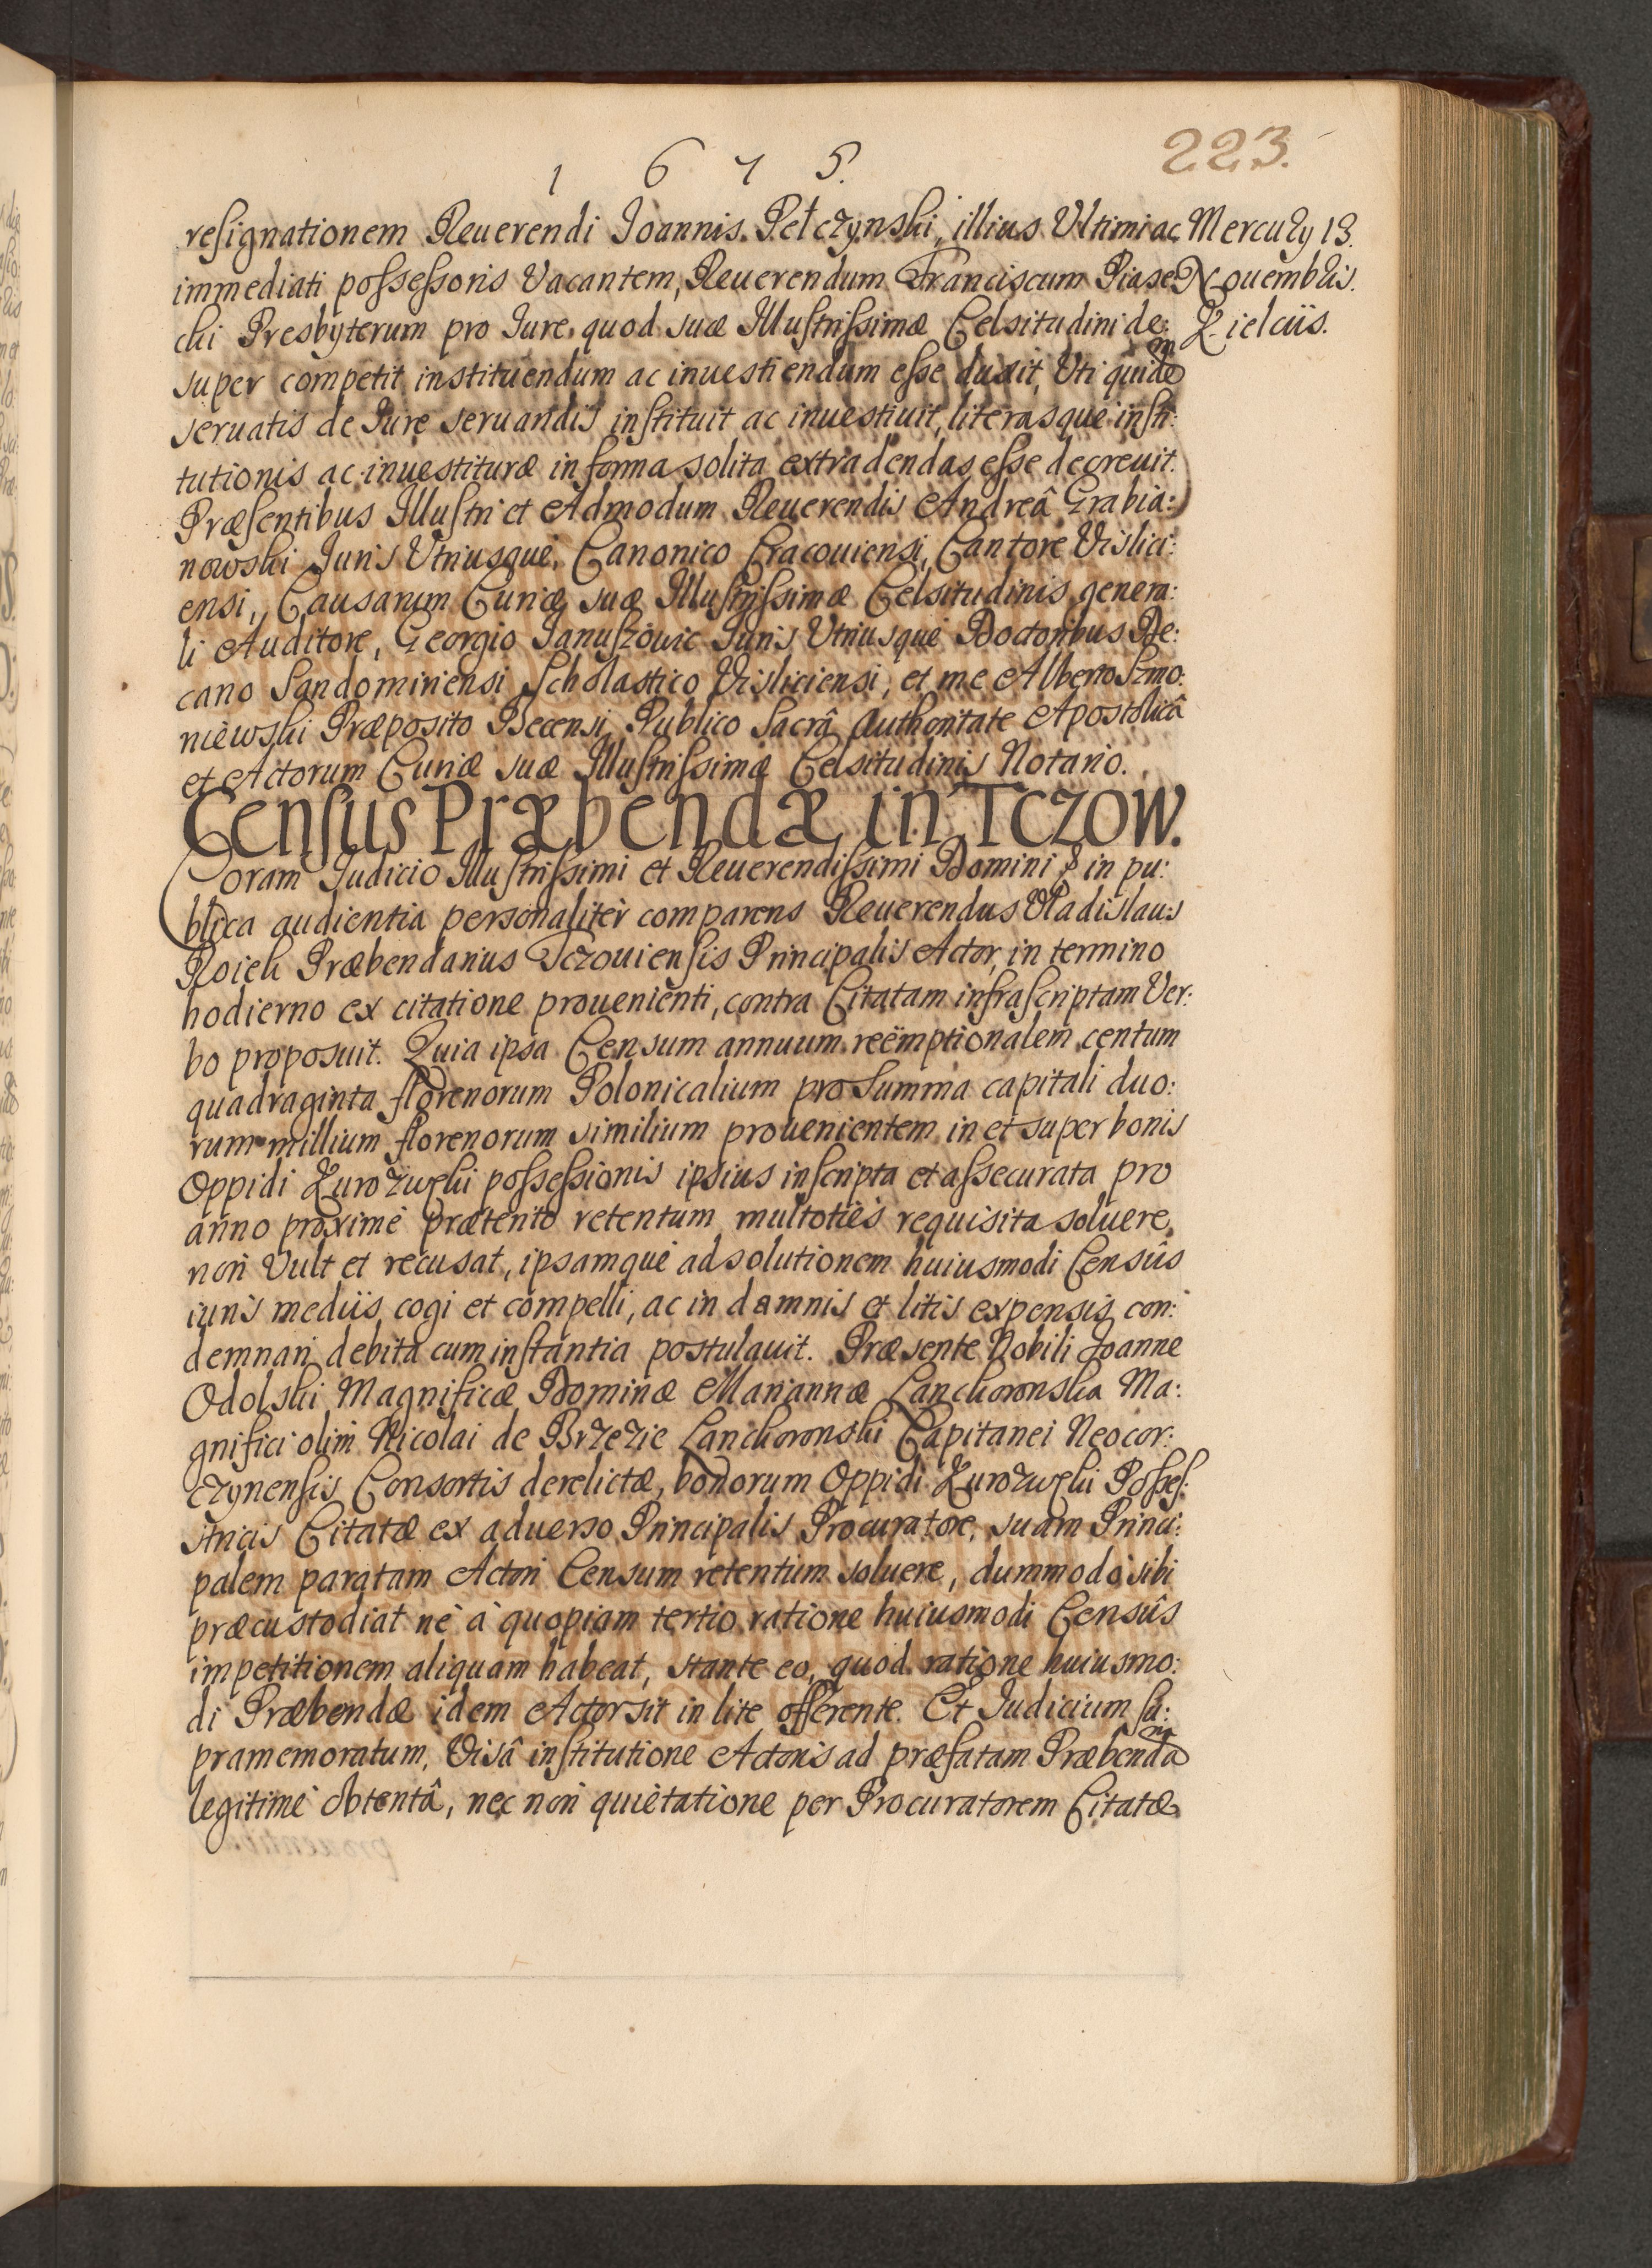 223.
1 6 7 5.
resignationem Reuerendi Joannis Pełczynski, illius Vltimi ac
Mercurÿ 13.
immediati possessoris Vacantem, Reuerendum Franciscum Piase
Nouembris.
cki Presbyterum pro Jure quod suæ Illustrissimæ Celsitudini de:
Kielciis.
super competit instituendum ac inuestiendum esse duxit, Vti quidem
seruatis de Jure seruandis instituit ac inuestiuit, literasquè insti:
tutionis ac inuestituræ in forma solita extradendas esse decreuit.
Præsentibus Illustri et Admodum Reuerendis Andreâ Grabia:
nowski Juris Vtriusquè, Canonico Cracouiensi, Cantore Vislici:
ensi, Causarum Curiæ suæ Illustrissimæ Celsitudinis genera:
li Auditore, Georgio Januszowic Juris Vtriusquè Doctoribus De:
cano Sandomiriensi Scholastico Visliciensi, et me Alberto Szmo:
niewski Præposito Becensi Publico Sacrâ Authoritate Apostolicâ
et Actorum Curiæ suæ Illustrissimæ Celsitudinis Notario.
Census Præbendæ in Tczow.
Coram Judicio Illustrissimi et Reuerendissimi Domini in pu:
blica audientia personalitèr comparens Reuerendus Vladislaus
Roiek Præbendarius Tczouiensis Principalis Actor, in termino
hodierno ex citatione prouenienti, contra Citatam infrascriptam Ver:
bo proposuit. Quia ipsa Censum annuum reëmptionalem centum
quadraginta florenorum Polonicalium pro Summa capitali duo:
rum millium florenorum similium prouenientem in et super bonis
Oppidi Kurozwęki possessionis ipsius inscripta et assecurata pro
anno proximè præterito retentum multotiès requisita soluere
non Vult et recusat, ipsamquè ad solutionem huiusmodi Censûs
iuris mediis cogi et compelli, ac in damnis et litis expensis con:
demnari debita cum instantia postulauit. Præsente Nobili Joanne
Odolski Magnificæ Dominæ Mariannæ Lanckoronska Ma:
gnifici olim Nicolai de Brzezie Lanckoronski Capitanei Neocor:
czynensis Consortis derelictæ, bonorum Oppidi Kurozwęki Posses:
stricis Citatæ ex aduerso Principalis Procuratore, suam Princi:
palem paratam Actori Censum retentum soluere, dummodò sibi
præcustodiat nè à quopiam tertio ratione huiusmodi Censûs
impetitionem aliquam habeat, stante eo, quod ratione huiusmo:
di Præbendæ idem Actor sit in lite offerente. Et Judicium su:
pramemoratum, Visâ institutione Actoris ad præfatam Præbendam
legitimè obtentâ, nec non quietatione per Procuratorem Citatæ